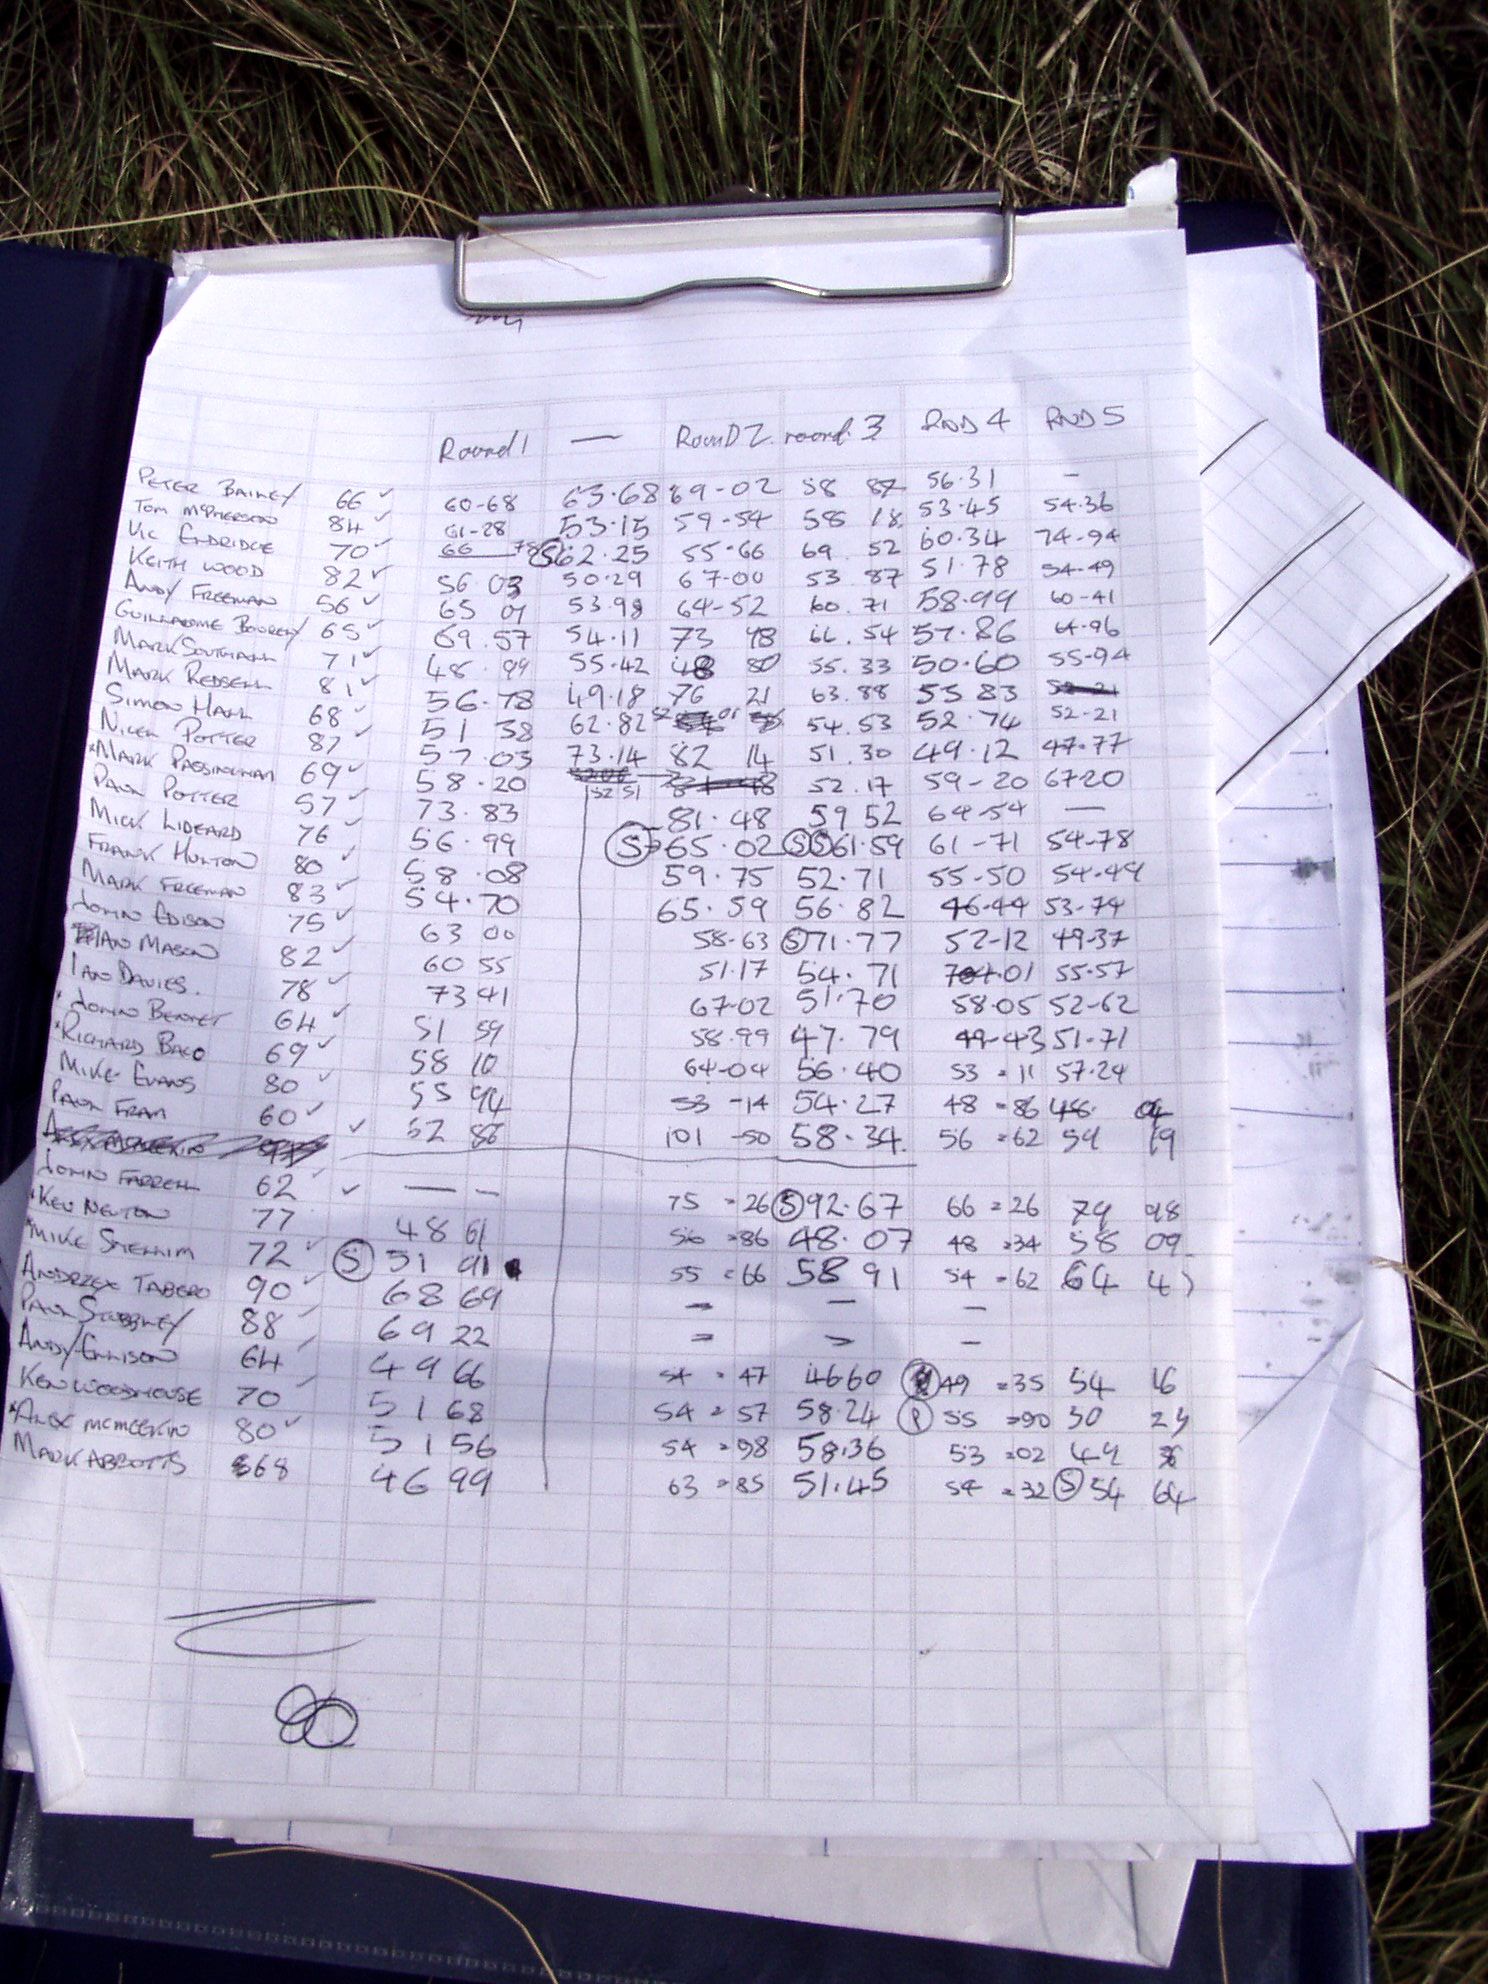 Round 1 — Round 2 round 3 RND 4 RND 5
PETER BAILEY 66 ✓ 60-68 63.68 69-02 58 87 56.31 -
TOM McPHERSON 84 ✓ 61-28 53.15 59-54 58 18 53.45 54.36
VIC ELDRIDGE 70 ✓ 66 78 S 62.25 55.66 69.52 60.34 74-94
KEITH WOOD 82 ✓ 56 03 50.29 67-00 53.87 51.78 54-49
ANDY FREEMAN 56 ✓ 65 01 53.98 64-52 60.71 58.99 60-41
65 ✓ 69.57 54.11 73 48 66.54 57.86 64-96
MARK SOUTHALL 71 ✓ 48.99 55.42 48 80 55.33 50.60 55-94
MARK REDSELL 81 ✓ 56.78 49.18 76 21 63.88 55 83
SIMON HALL 68 ✓ 51 38 62.82 52 01 54.53 52.74 52-21
NICK POTTER 87 ✓ 57.03 73.14 82 14 51.30 49.12 47.77
*MARK PASSINGHAM 69 ✓ 58.20 52 51 52.17 59-20 67 20
PAUL POTTER 57 ✓ 73.83 81.48 59 52 64-54 —
MICK LIDEARD 76 ✓ 56.99 S 65.02 S S 61.59 61-71 54-78
FRANK HULTON 80 ✓ 58.08 59.75 52.71 55-50 54-49
MARK FREEMAN 83 ✓ 54.70 65.59 56.82 46-44 53-74
JOHN EDISON 75 ✓ 63 00 58-63 S 71.77 52-12 49-37
IAN MASON 82 ✓ 60 55 51.17 54.71 55-57
IAN DAVIES. 78 ✓ 73 41 67-02 51.70 58.05 52-62
*JOHN BENNET 64 ✓ 51 59 58.99 47.79 49-43 51-71
*RICHARD BAGO 69 ✓ 58 10 64-04 56.40 53=11 57.24
MIKE EVANS 80 ✓ 55 94 53-14 54.27 48=86 48. 04
PAUL FRAM 60 ✓ ✓ 52 86 101-50 58.34 56=62 59 19
JOHN FARRELL 62 ✓ ✓ — — 75=26 S 92.67 66=26 79 98
*KEN NEWTON 77 48 61 56=86 48.07 48=34 58 09
*MIKE SHELLIM 72 ✓ S 51 91 55=66 58 91 54=62 64 47
ANDRZEJ TABERO 90 ✓ 68 69 - - -
PAUL STUBBLEY 88 69 22 = - -
ANDY ELLISON 64 49 66 54=47 46 60 49=35 54 16
KEN WOODHOUSE 70 51 68 54=57 58.24 R 55=90 50 24
*ALEX McMEEKIN 80 ✓ 51 56 54=98 58.36 53=02 49
MARK ABBOTTS 68 46 99 63=85 51.45 54=32 S 54 64